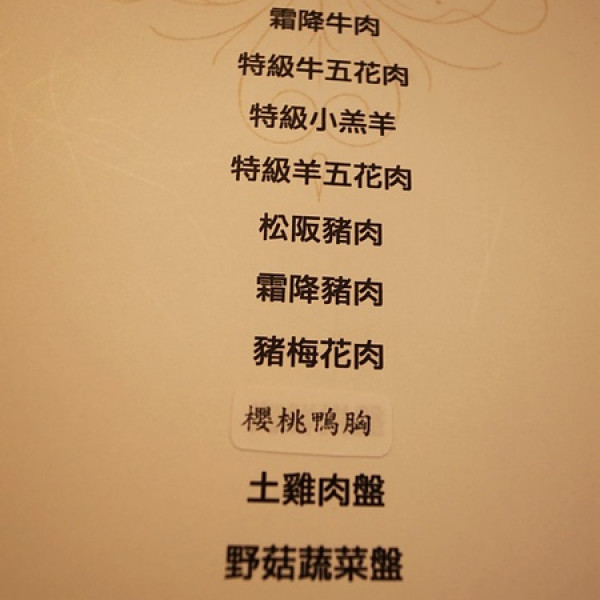 霜降牛肉
特級牛五花肉
特級小羔羊
特級羊五花肉
松阪豬肉
霜降豬肉
豬梅花肉
櫻桃鴨胸
土雞肉盤
野菇蔬菜盤